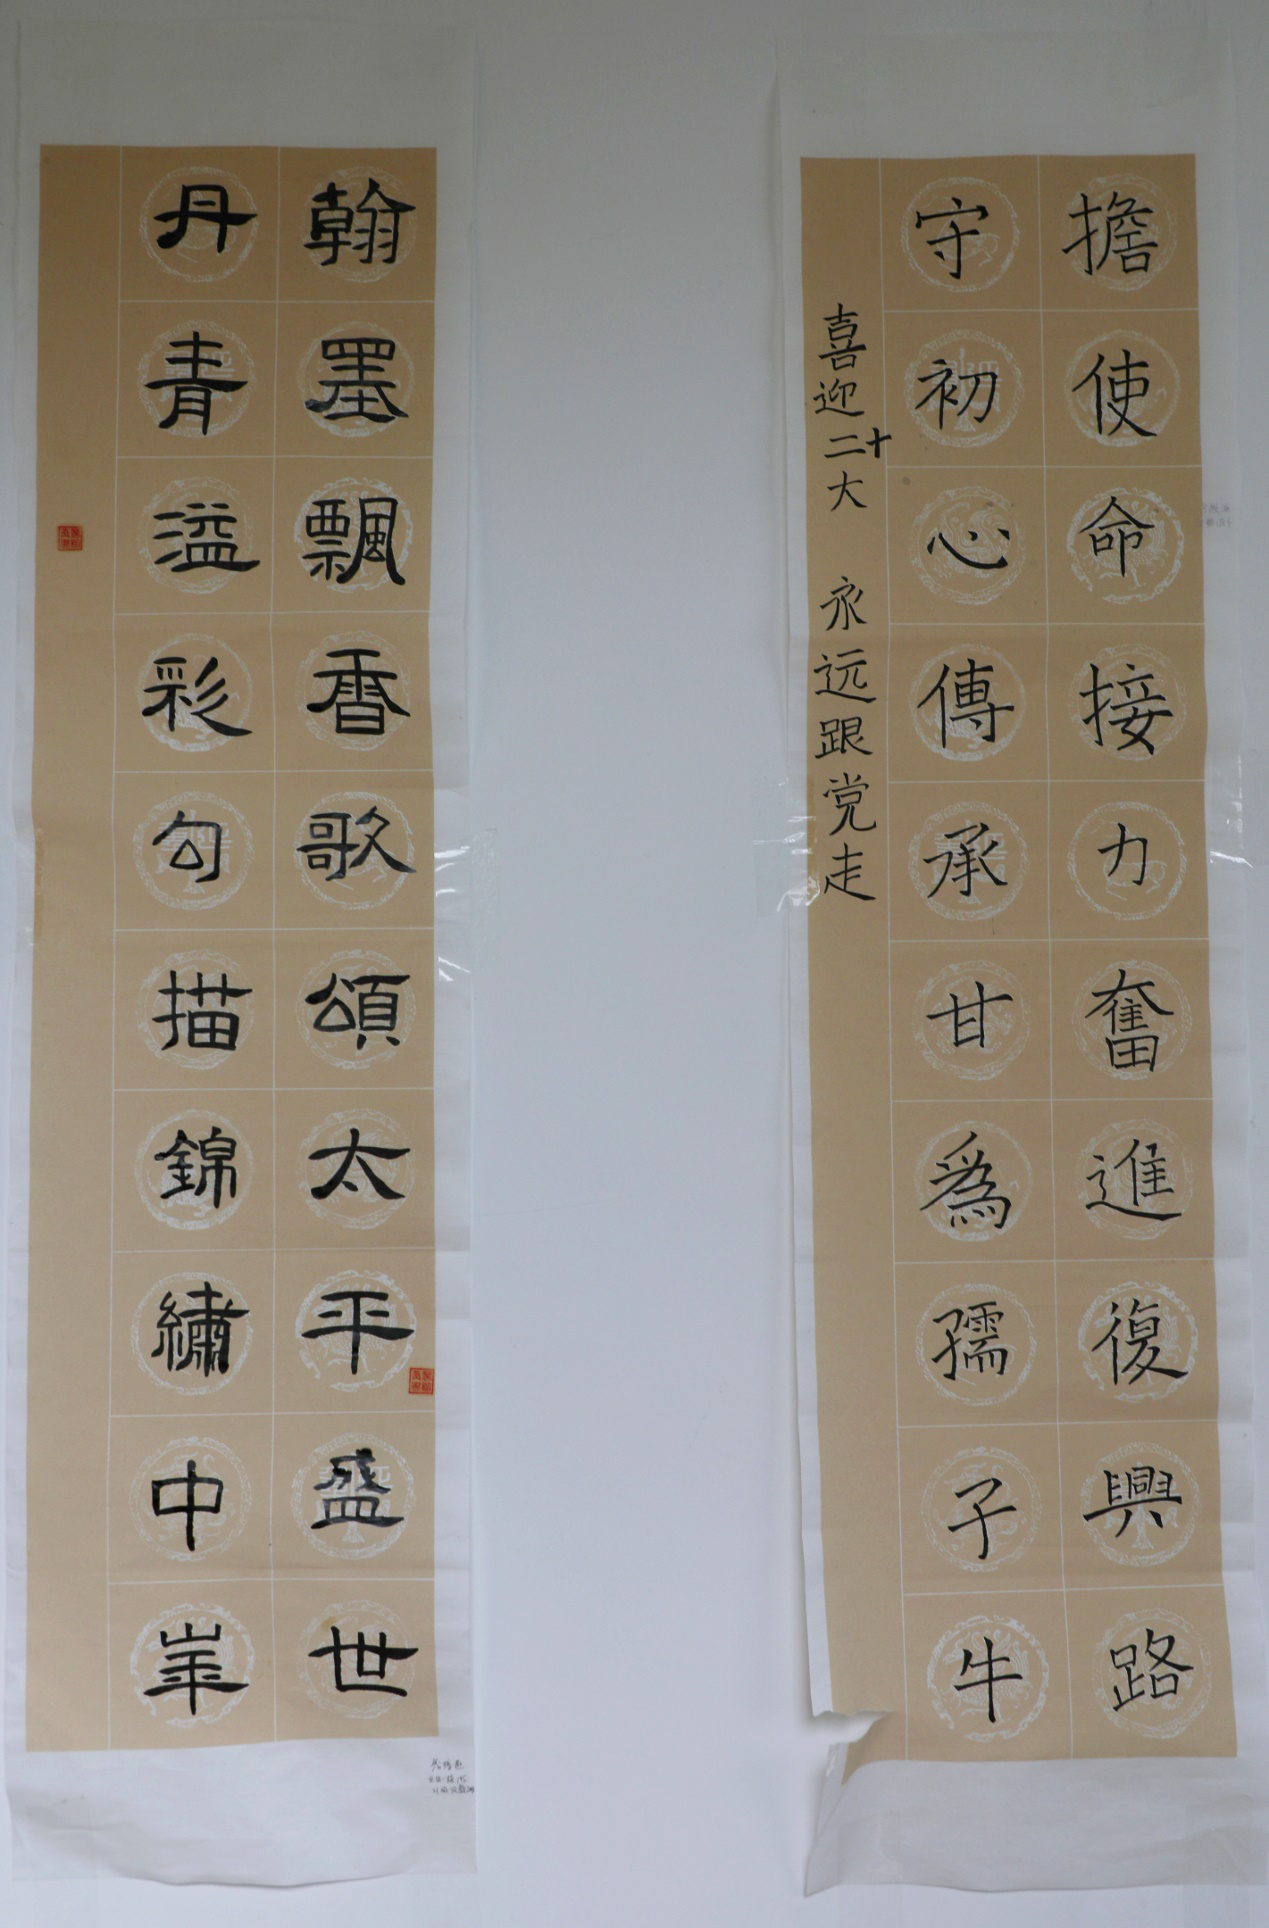 擔使命接力奮進復興路
守初心傳承甘為孺子牛
喜迎二十大 永远跟党走
翰墨飄香歌頌太平盛世
丹青溢彩勾描錦繡中華